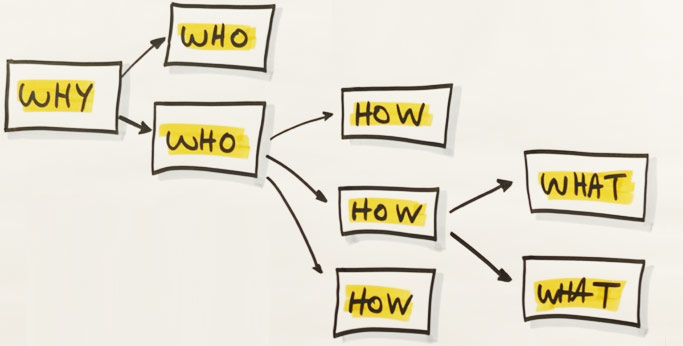 WHY
WHO
WHO
HOW
HOW
HOW
WHAT
WHAT